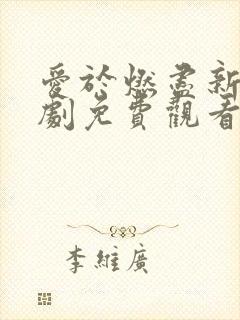 愛於燃盡新
劇免費觀看
李維廣